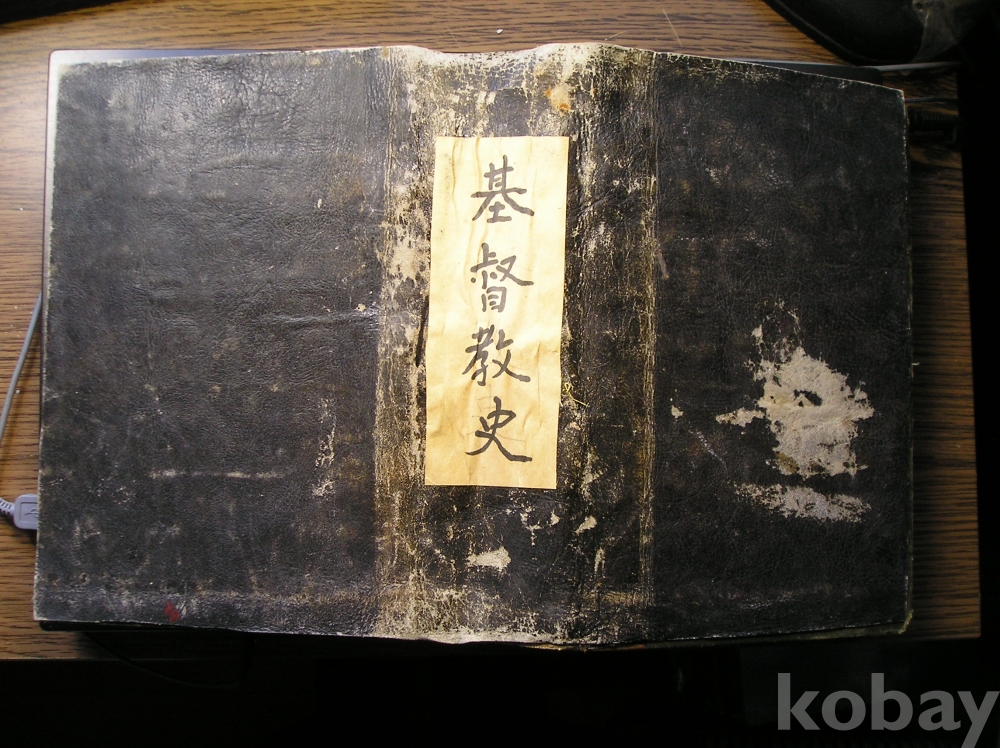 基督教史
kobay